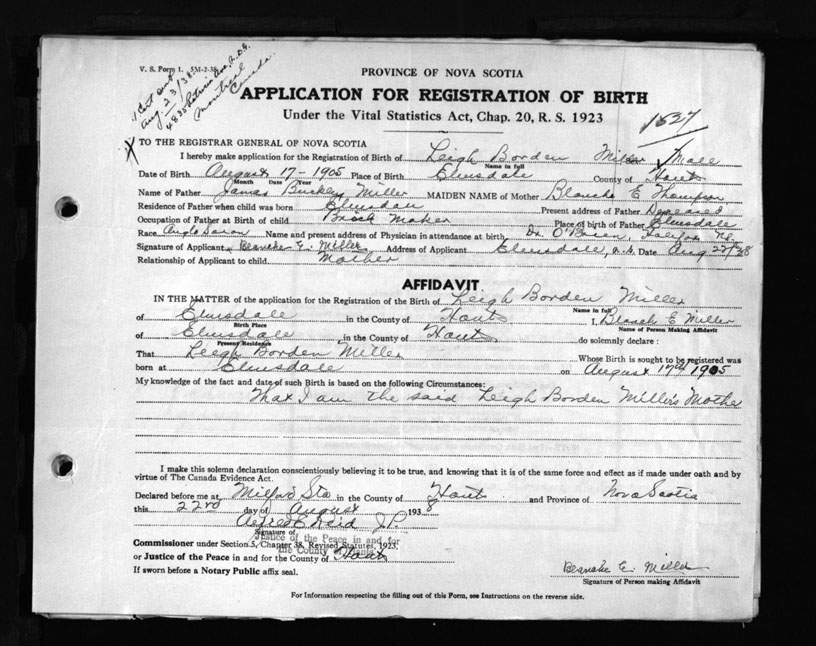 V. S. Form 1. 5M-2-38
1 Cert sent
Aug. 23/38.
4830 Patricia Ave. N.D.G.
Montreal
Canada.
PROVINCE OF NOVA SCOTIA
APPLICATION FOR REGISTRATION OF BIRTH
Under the Vital Statistics Act, Chap. 20, R. S. 1923
1527
X TO THE REGISTRAR GENERAL OF NOVA SCOTIA
I hereby make application for the Registration of Birth of Leigh Borden Miller Male
Name in full
Date of Birth August 17 - 1905 Place of Birth Elmsdale County of Hants
Month Date Year
Name of Father James Buckley Miller MAIDEN NAME of Mother Blanche E Thompson
Residence of Father when child was born Elmsdale Present address of Father Deceased
Occupation of Father at Birth of child Brick Maker Place of birth of Father Elmsdale
Race Anglo Saxon Name and present address of Physician in attendance at birth Dr. O'Brien, Halifax NS
Signature of Applicant Blanche E. Miller Address of Applicant Elmsdale, N.S. Date Aug 22/38
Relationship of Applicant to child Mother
AFFIDAVIT
IN THE MATTER of the application for the Registration of the Birth of Leigh Borden Miller
Name in full
of Elmsdale in the County of Hants I, Blanch E Miller
Birth Place Name of Person Making Affidavit
of Elmsdale in the County of Hants do solemnly declare :
Present Residence
That Leigh Borden Miller Whose Birth is sought to be registered was
born at Elmsdale on August 17th 1905
My knowledge of the fact and date of such Birth is based on the following Circumstances:
That I am the said Leigh Borden Miller's Mother
I make this solemn declaration conscientiously believing it to be true, and knowing that it is of the same force and effect as if made under oath and by
virtue of The Canada Evidence Act.
Declared before me at Milford Sta in the County of Hants and Province of Nova Scotia
this 22nd day of August 1938
Alfred E Reid J.P.
Signature of
Justice of the Peace in and for
Commissioner under Section 5, Chapter 38, Revised Statutes, 1923,
the County of Hants
or Justice of the Peace in and for the County of Hants
If sworn before a Notary Public affix seal.
Blanche E. Miller
Signature of Person making Affidavit
For Information respecting the filling out of this Form, see Instructions on the reverse side.